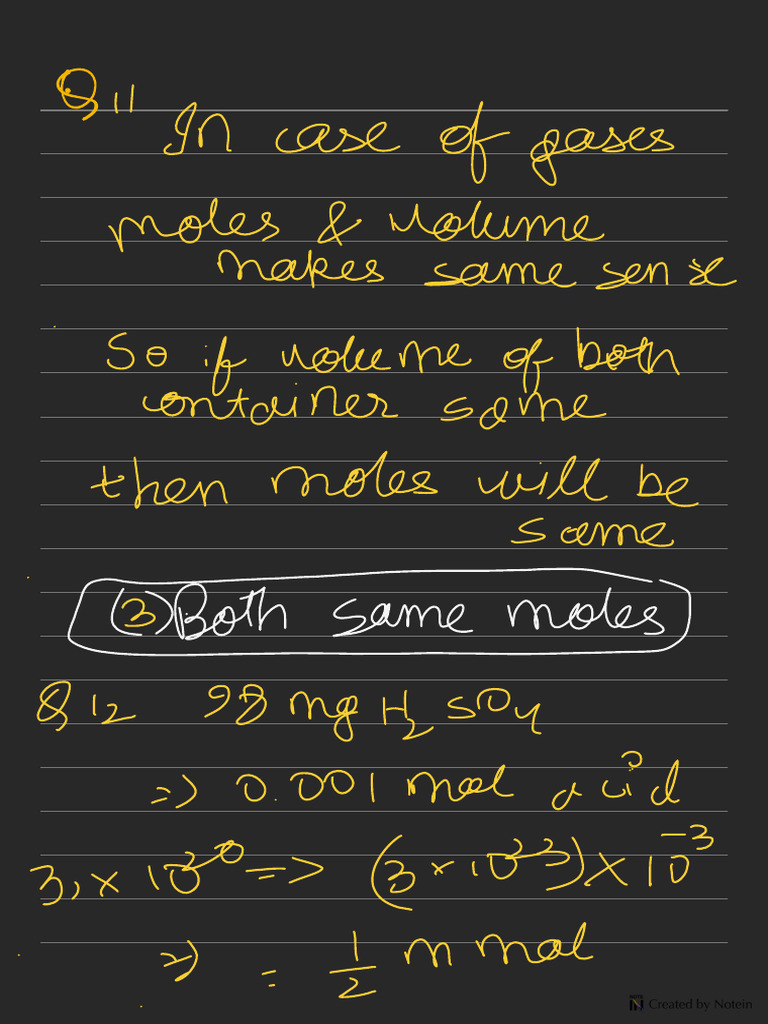 Q 11
In case of gases
moles & volume
makes same sense
So if volume of both
container same
then moles will be
same
(3) Both same moles
Q 12 98 mg H₂SO₄
=> 0.001 mol acid
3.×10²⁰ => (3×10²³)×10⁻³
=> = 1/2 m mol
Created by Notein